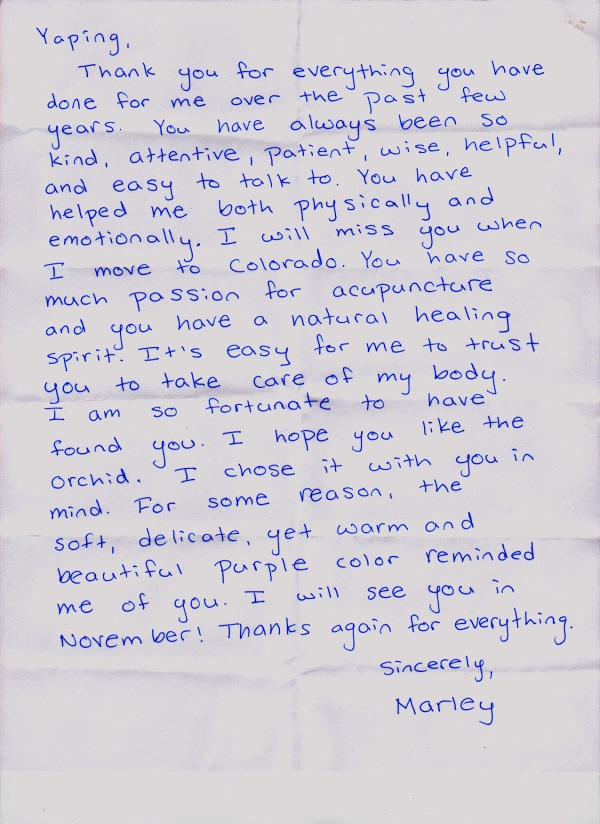 Yaping,
Thank you for everything you have
done for me over the past few
years. You have always been so
kind, attentive, patient, wise, helpful,
and easy to talk to. You have
helped me both physically and
emotionally. I will miss you when
I move to Colorado. You have so
much passion for acupuncture
and you have a natural healing
spirit. It's easy for me to trust
you to take care of my body.
I am so fortunate to have
found you. I hope you like the
orchid. I chose it with you in
mind. For some reason, the
soft, delicate, yet warm and
beautiful purple color reminded
me of you. I will see you in
November! Thanks again for everything.
Sincerely,
Marley